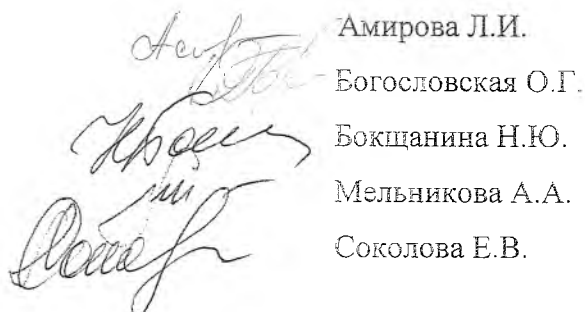 Амирова Л.И.
Богословская О.Г.
Бокщанина Н.Ю.
Мельникова А.А.
Соколова Е.В.